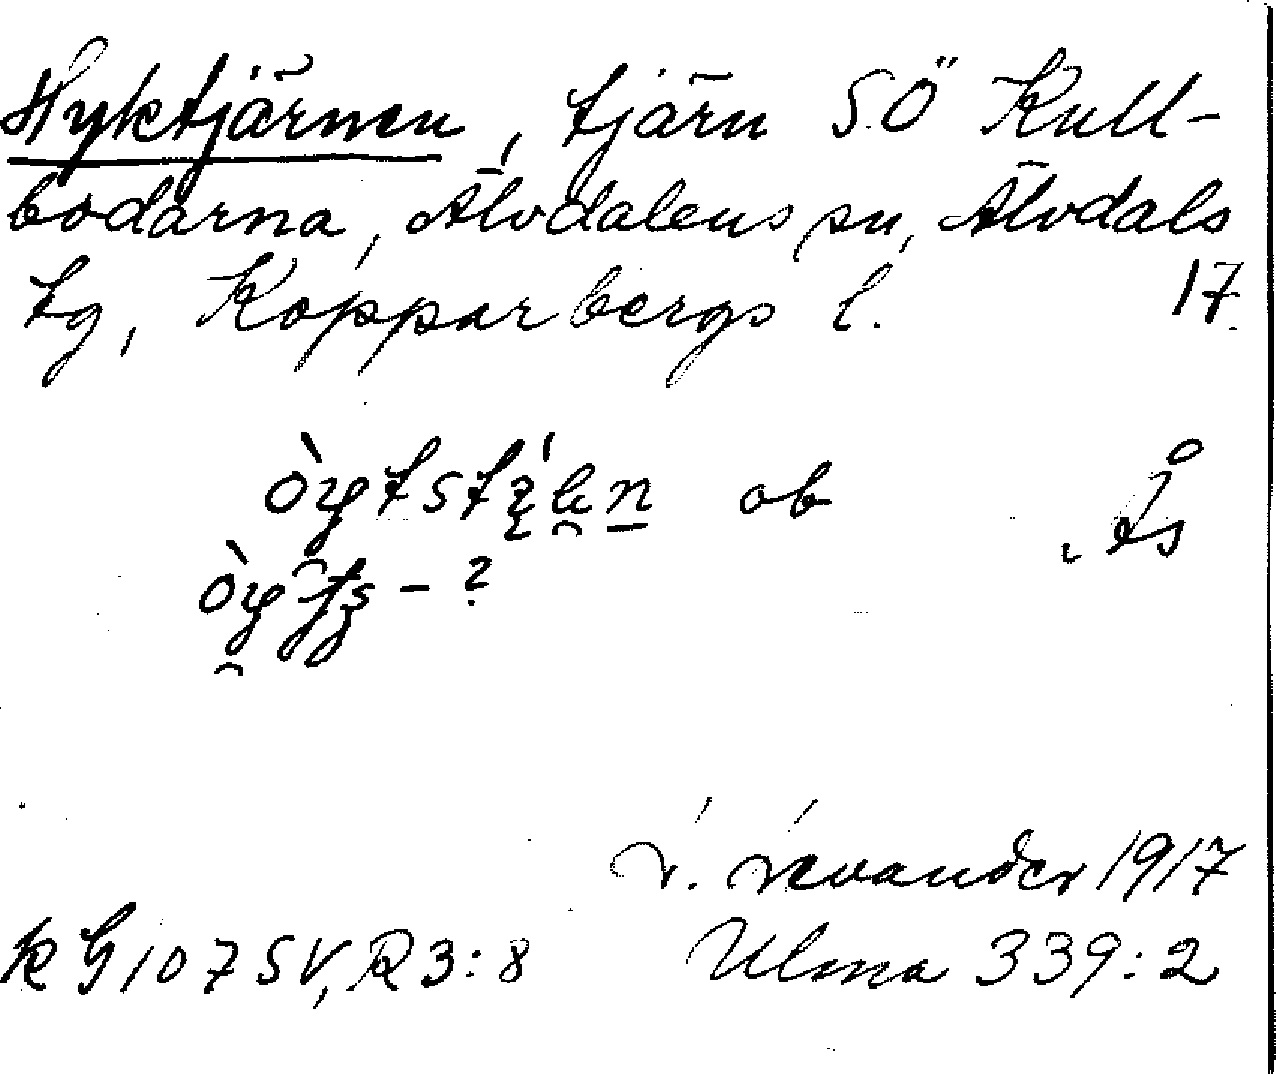 Hyktjärnen, tjärn SÖ Kull-
bodarna, Älvdalens sn, Älvdals
tg, Kopparbergs l. 17.
ob Ås
L. Levander 1917
kG 107 SV, R 3:8 Ulma 339:2